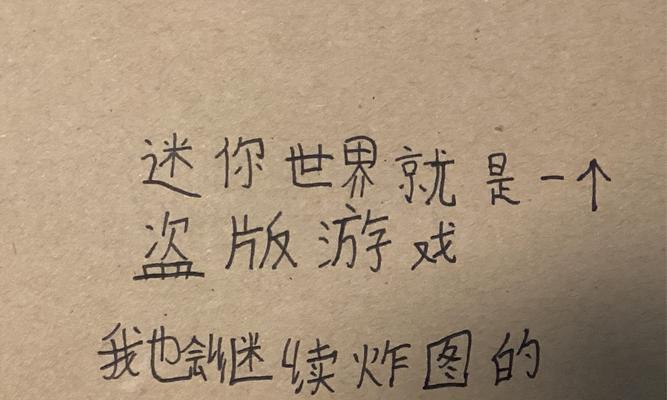 迷你世界就是一个
盗版游戏
我也会继续炸图的